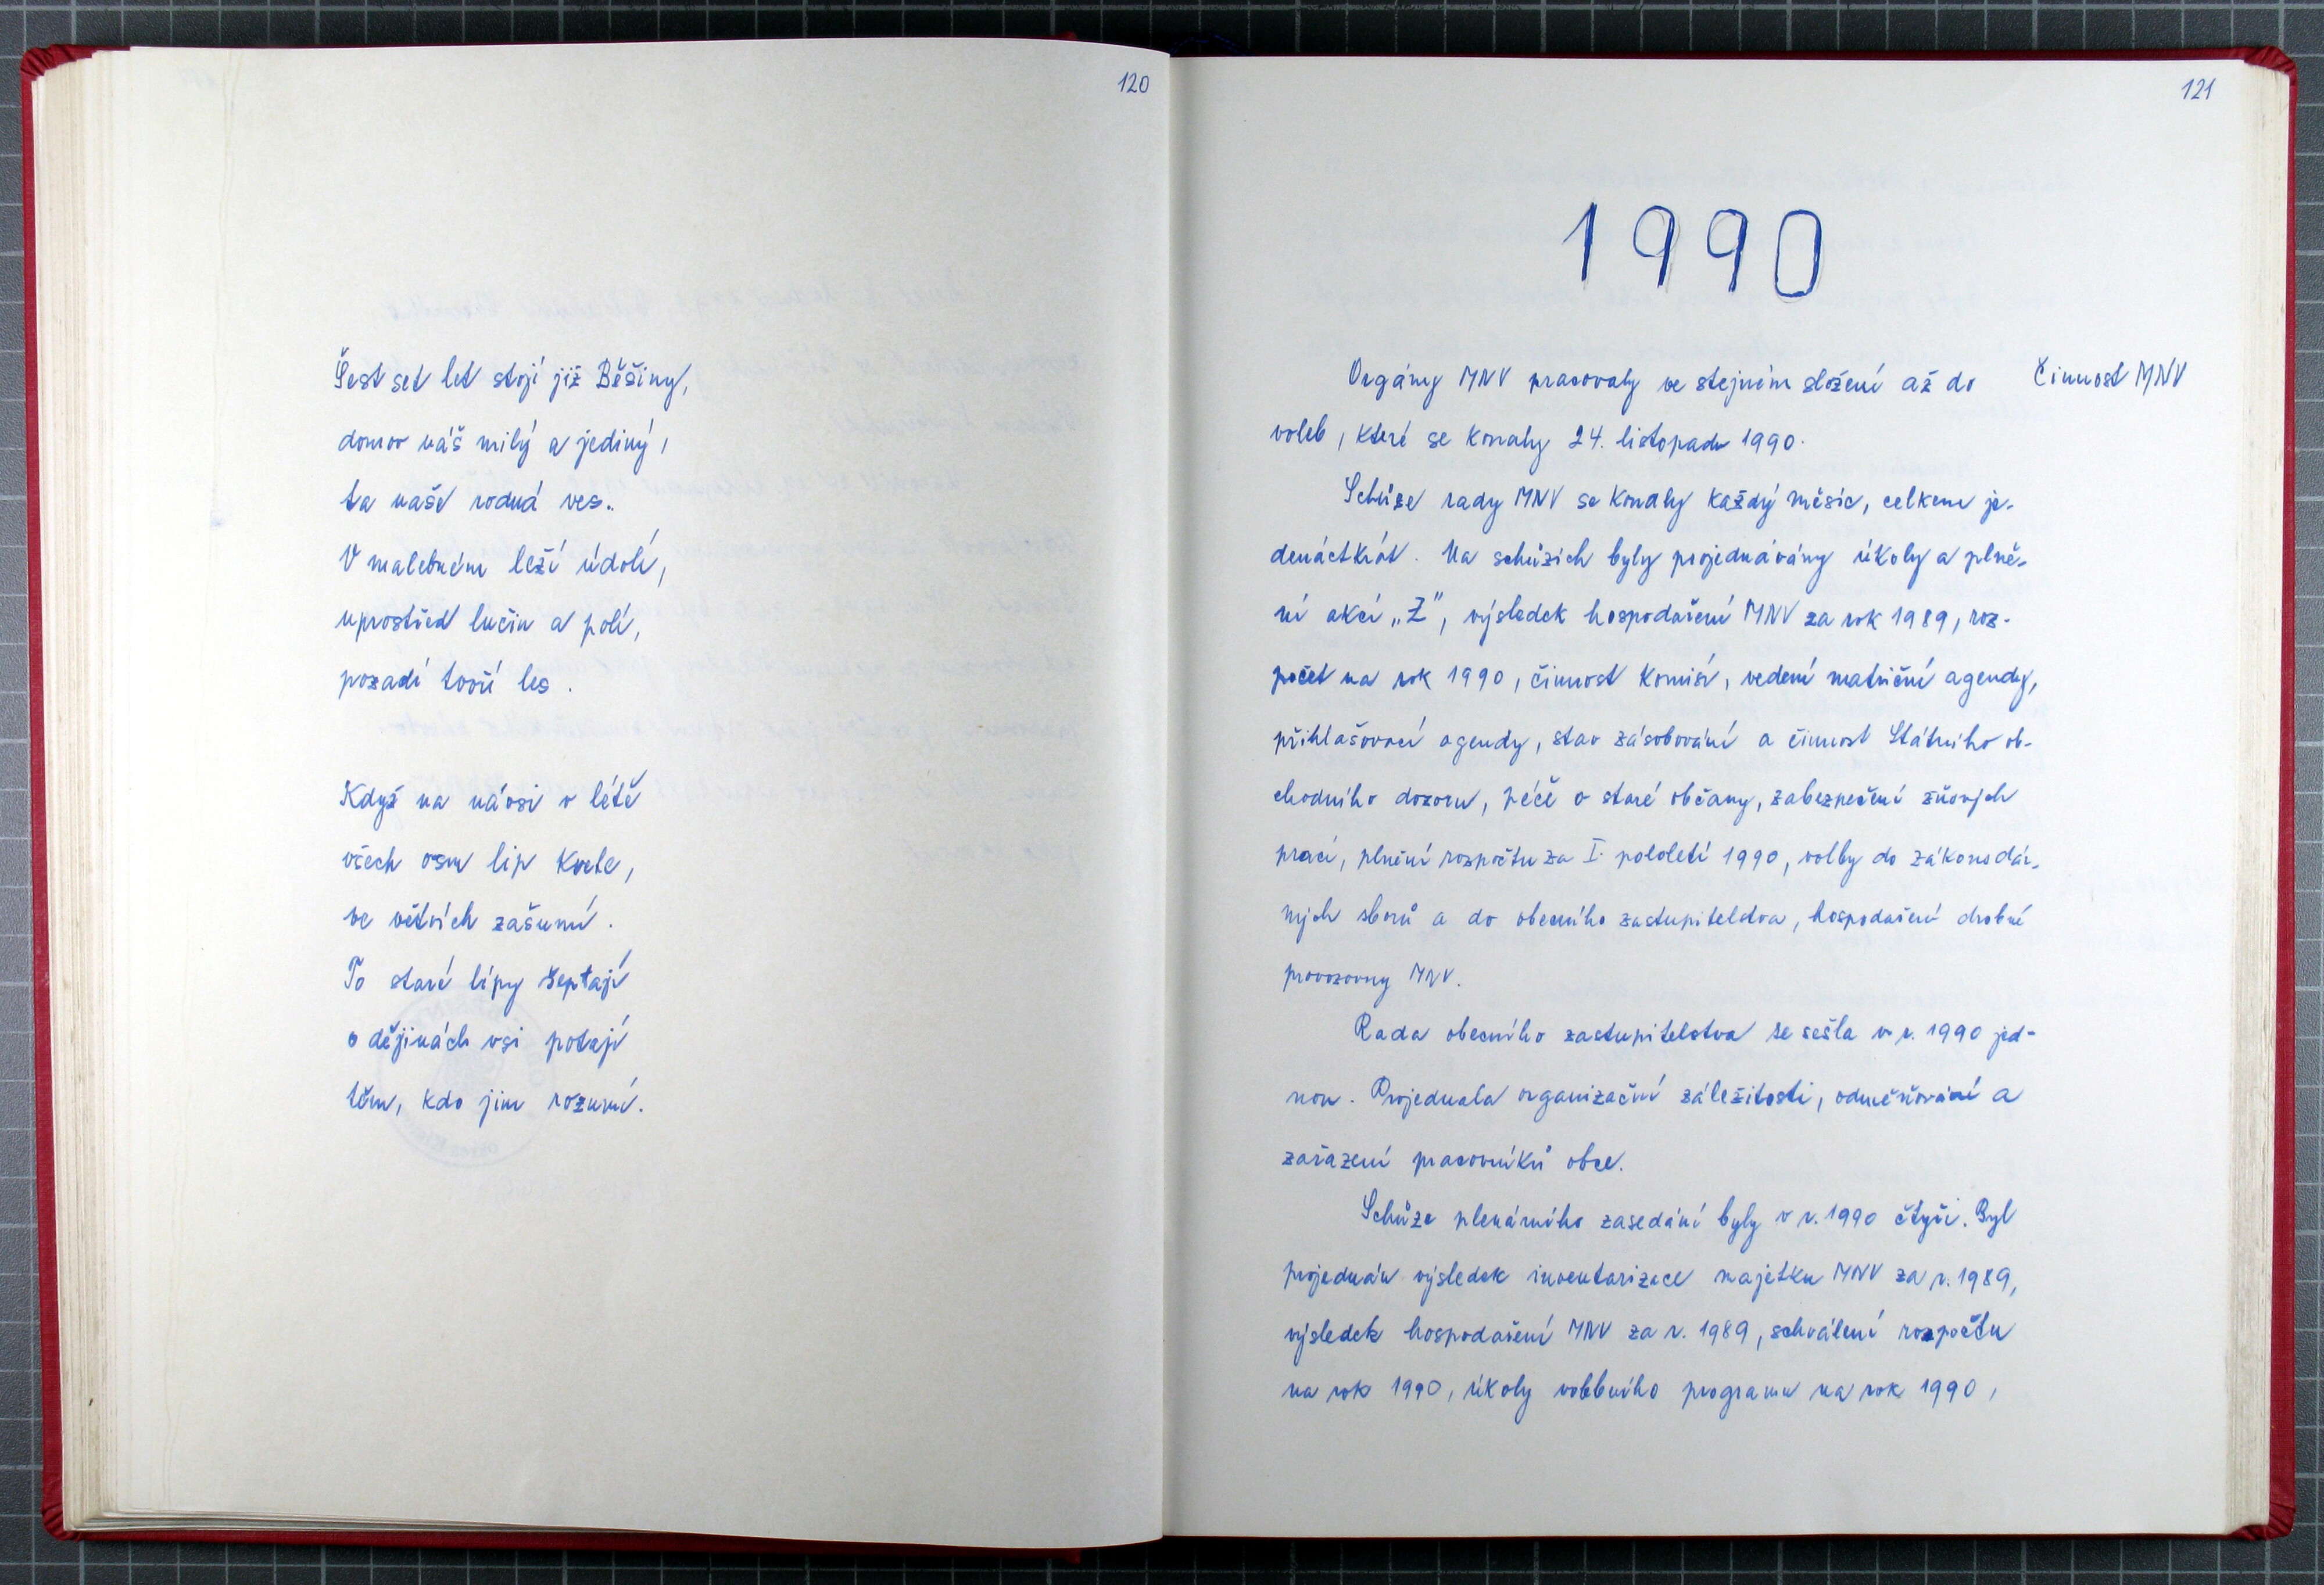 120
Šest set let stojí již Běšiny,
domov náš milý a jediný,
ta naše rodná ves.
V malebném leží údolí,
uprostřed lučin a polí,
pozadí tvoří les.
Když na návsi v létě
všech osm lip kvete,
ve větvích zašumí.
To staré lípy šeptají
o dějinách vsi potají
těm, kdo jim rozumí.
121
1990
Orgány MNV pracovaly ve stejném složení až do
Činnost MNV
voleb, které se konaly 24. listopadu 1990.
Schůze rady MNV se konaly každý měsíc, celkem je-
denáctkrát. Na schůzích byly projednávány úkoly a plně-
ní akcí „Z", výsledek hospodaření MNV za rok 1989, roz-
počet na rok 1990, činnost komisí, vedení matriční agendy,
přihlašovací agendy, stav zásobování a činnost Státního ob-
chodního dozoru, péče o staré občany, zabezpečení žňových
prací, plnění rozpočtu za I. pololetí 1990, volby do zákonodár-
ných sborů a do obecního zastupitelstva, hospodaření drobné
provozovny MNV.
Rada obecního zastupitelstva se sešla v r. 1990 jed-
nou. Projednala organizační záležitosti, odměňování a
zařazení pracovníků obce.
Schůze plenárního zasedání byly v r. 1990 čtyři. Byl
projednán výsledek inventarizace majetku MNV za r. 1989,
výsledek hospodaření MNV za r. 1989, schválení rozpočtu
na rok 1990, úkoly volebního programu na rok 1990,